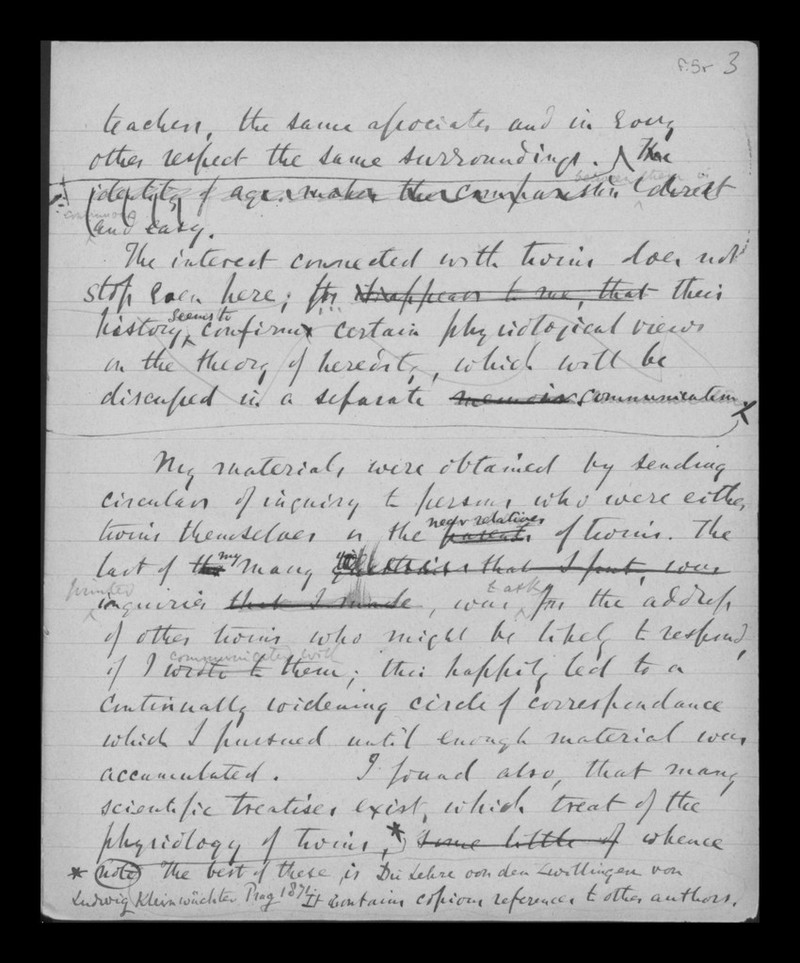 f.3r 3
teachers, the same associates and in every
other respect the same surroundings. The
between them is
identity of age makes the comparison direct
and easy.
The interest connected with twins does not
stop even here; for it appears to me, that their
seems to
history, confirms certain physiological views
on the theory of heredity, which will be
discussed in a separate memoir communication
My materials were obtained by sending
circulars of inquiry to persons who were either
near relatives
twins themselves or the parents of twins. The
my
last of the many questions that I put, was
printed to ask
inquiries that I made, was for the address
of other twins who might be likely to respond,
communicated with
if I wrote to them; this happily led to a
continually widening circle of correspondance
which I pursued until enough material was
accumulated. I found also, that many
scientific treatises exist, which treat of the
physiology of twins,* some little of whence
* note The best of these is Die Lehre von den Zwillingen von
Ludwig Kleinwächter Prag 1871. It contains copious references to other authors.